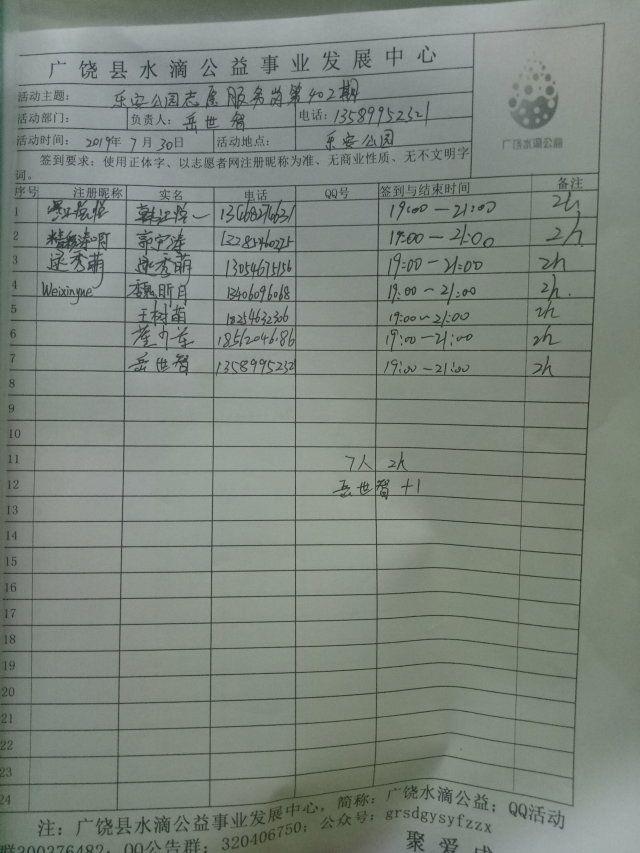 广饶县水滴公益事业发展中心
活动主题: 乐安公园志愿服务岗第402期
活动部门: 负责人: 岳世智 电话: 13589952321
活动时间: 2019年7月30日 活动地点: 乐安公园
广饶水滴公益
签到要求: 使用正体字、以志愿者网注册昵称为准、无商业性质、无不文明字词。
序号 注册昵称 实名 电话 QQ号 签到与结束时间 备注
1 19:00-21:00 2h
2 19:00-21:00 2h
3 逯秀萌 逯秀萌 13054675156 19:00-21:00 2h
4 Weixingyue 魏昕月 13406096068 19:00-21:00 2h.
5 王树萌 18254632306 19:00-21:00 2h
6 18562046186 19:00-21:00 2h
7 岳世智 1358995232 19:00-21:00 2h
8
9
10
11 7人 2h
12 岳世智 +1
13
14
15
16
17
18
19
20
21
22
23
24
注: 广饶县水滴公益事业发展中心, 简称: 广饶水滴公益; QQ活动
群300376482; QQ公告群: 320406750; 公众号: grsdgysyfzzx
聚爱成